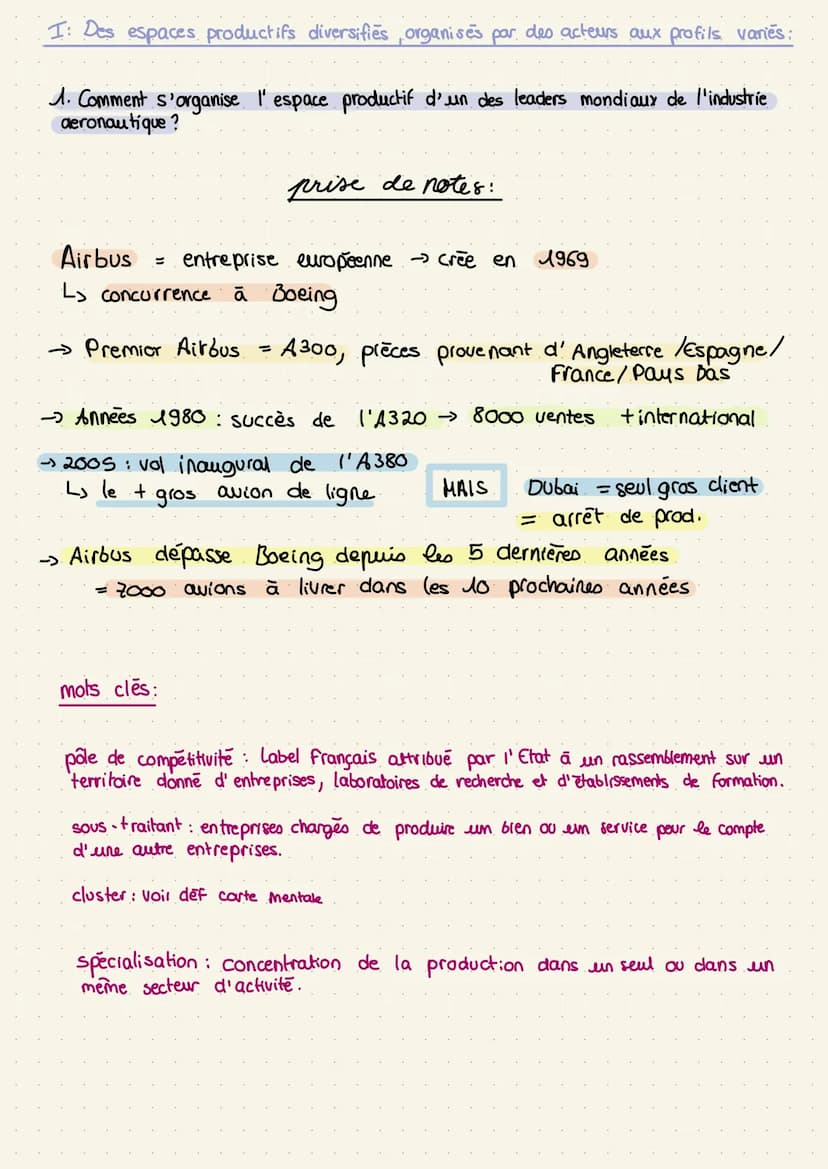 I: Des espaces productifs diversifiés, organisés par des acteurs aux profils variés:
1. Comment s'organise l'espace productif d'un des leaders mondiaux de l'industrie
aeronautique?
prise de notes:
Airbus = entreprise européenne → crée en 1969
↳ concurrence à Boeing
→ Premier Airbus = A300, pièces provenant d'Angleterre/Espagne/
France/Pays Bas
→ Années 1980 : succès de l'A320 → 8000 ventes + international
→ 2005 : vol inaugural de l'A380
↳ le + gros avion de ligne
MAIS
Dubai = seul gros client
= arrêt de prod.
→ Airbus dépasse Boeing depuis les 5 dernières années
= 7000 avions à livrer dans les 10 prochaines années
mots clés:
pôle de compétitivité : Label Français attribué par l'Etat à un rassemblement sur un
territoire donné d'entreprises, laboratoires de recherche et d'établissements de formation.
sous-traitant : entreprises chargés de produire un bien ou un service pour le compte
d'une autre entreprises.
cluster : voir déf carte mentale
spécialisation : concentration de la production dans un seul ou dans un
même secteur d'activité.